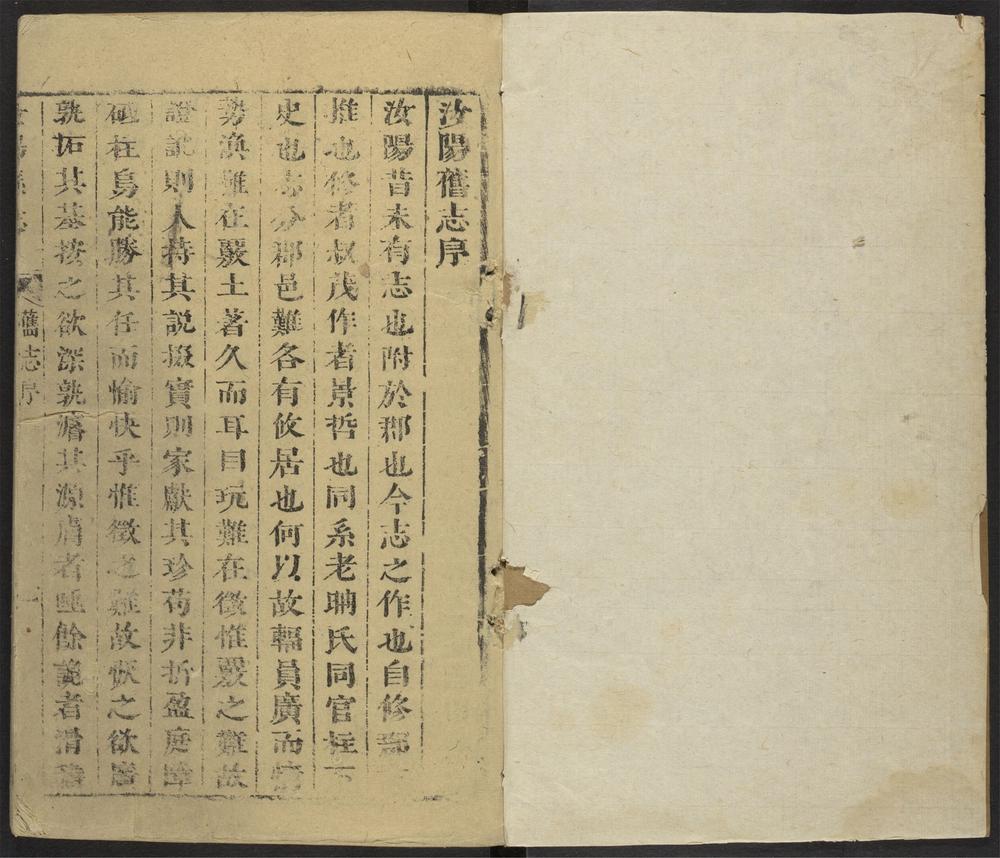 汝陽舊志序
汝陽昔未有志也附於郡也今志之作也自修郡
推也修者叔茂作者景哲也同系老聃氏同官柱下
史也志分郡邑難各有攸居也何以故輻員廣而
勢渙難在覈土著久而耳目玩難在徵惟覈之難故
證訛則人持其說掇實則家獻其珍苟非折盈庭障
砥柱烏能勝其任而愉快乎惟徵之難故恢之欲廣
孰拓其基接之欲深孰濬其源膚者唾餘詭者滑稽
舊志序
一